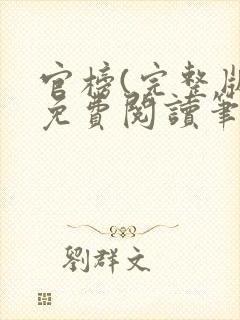 官榜(完整版
免費閱讀筆
劉群文